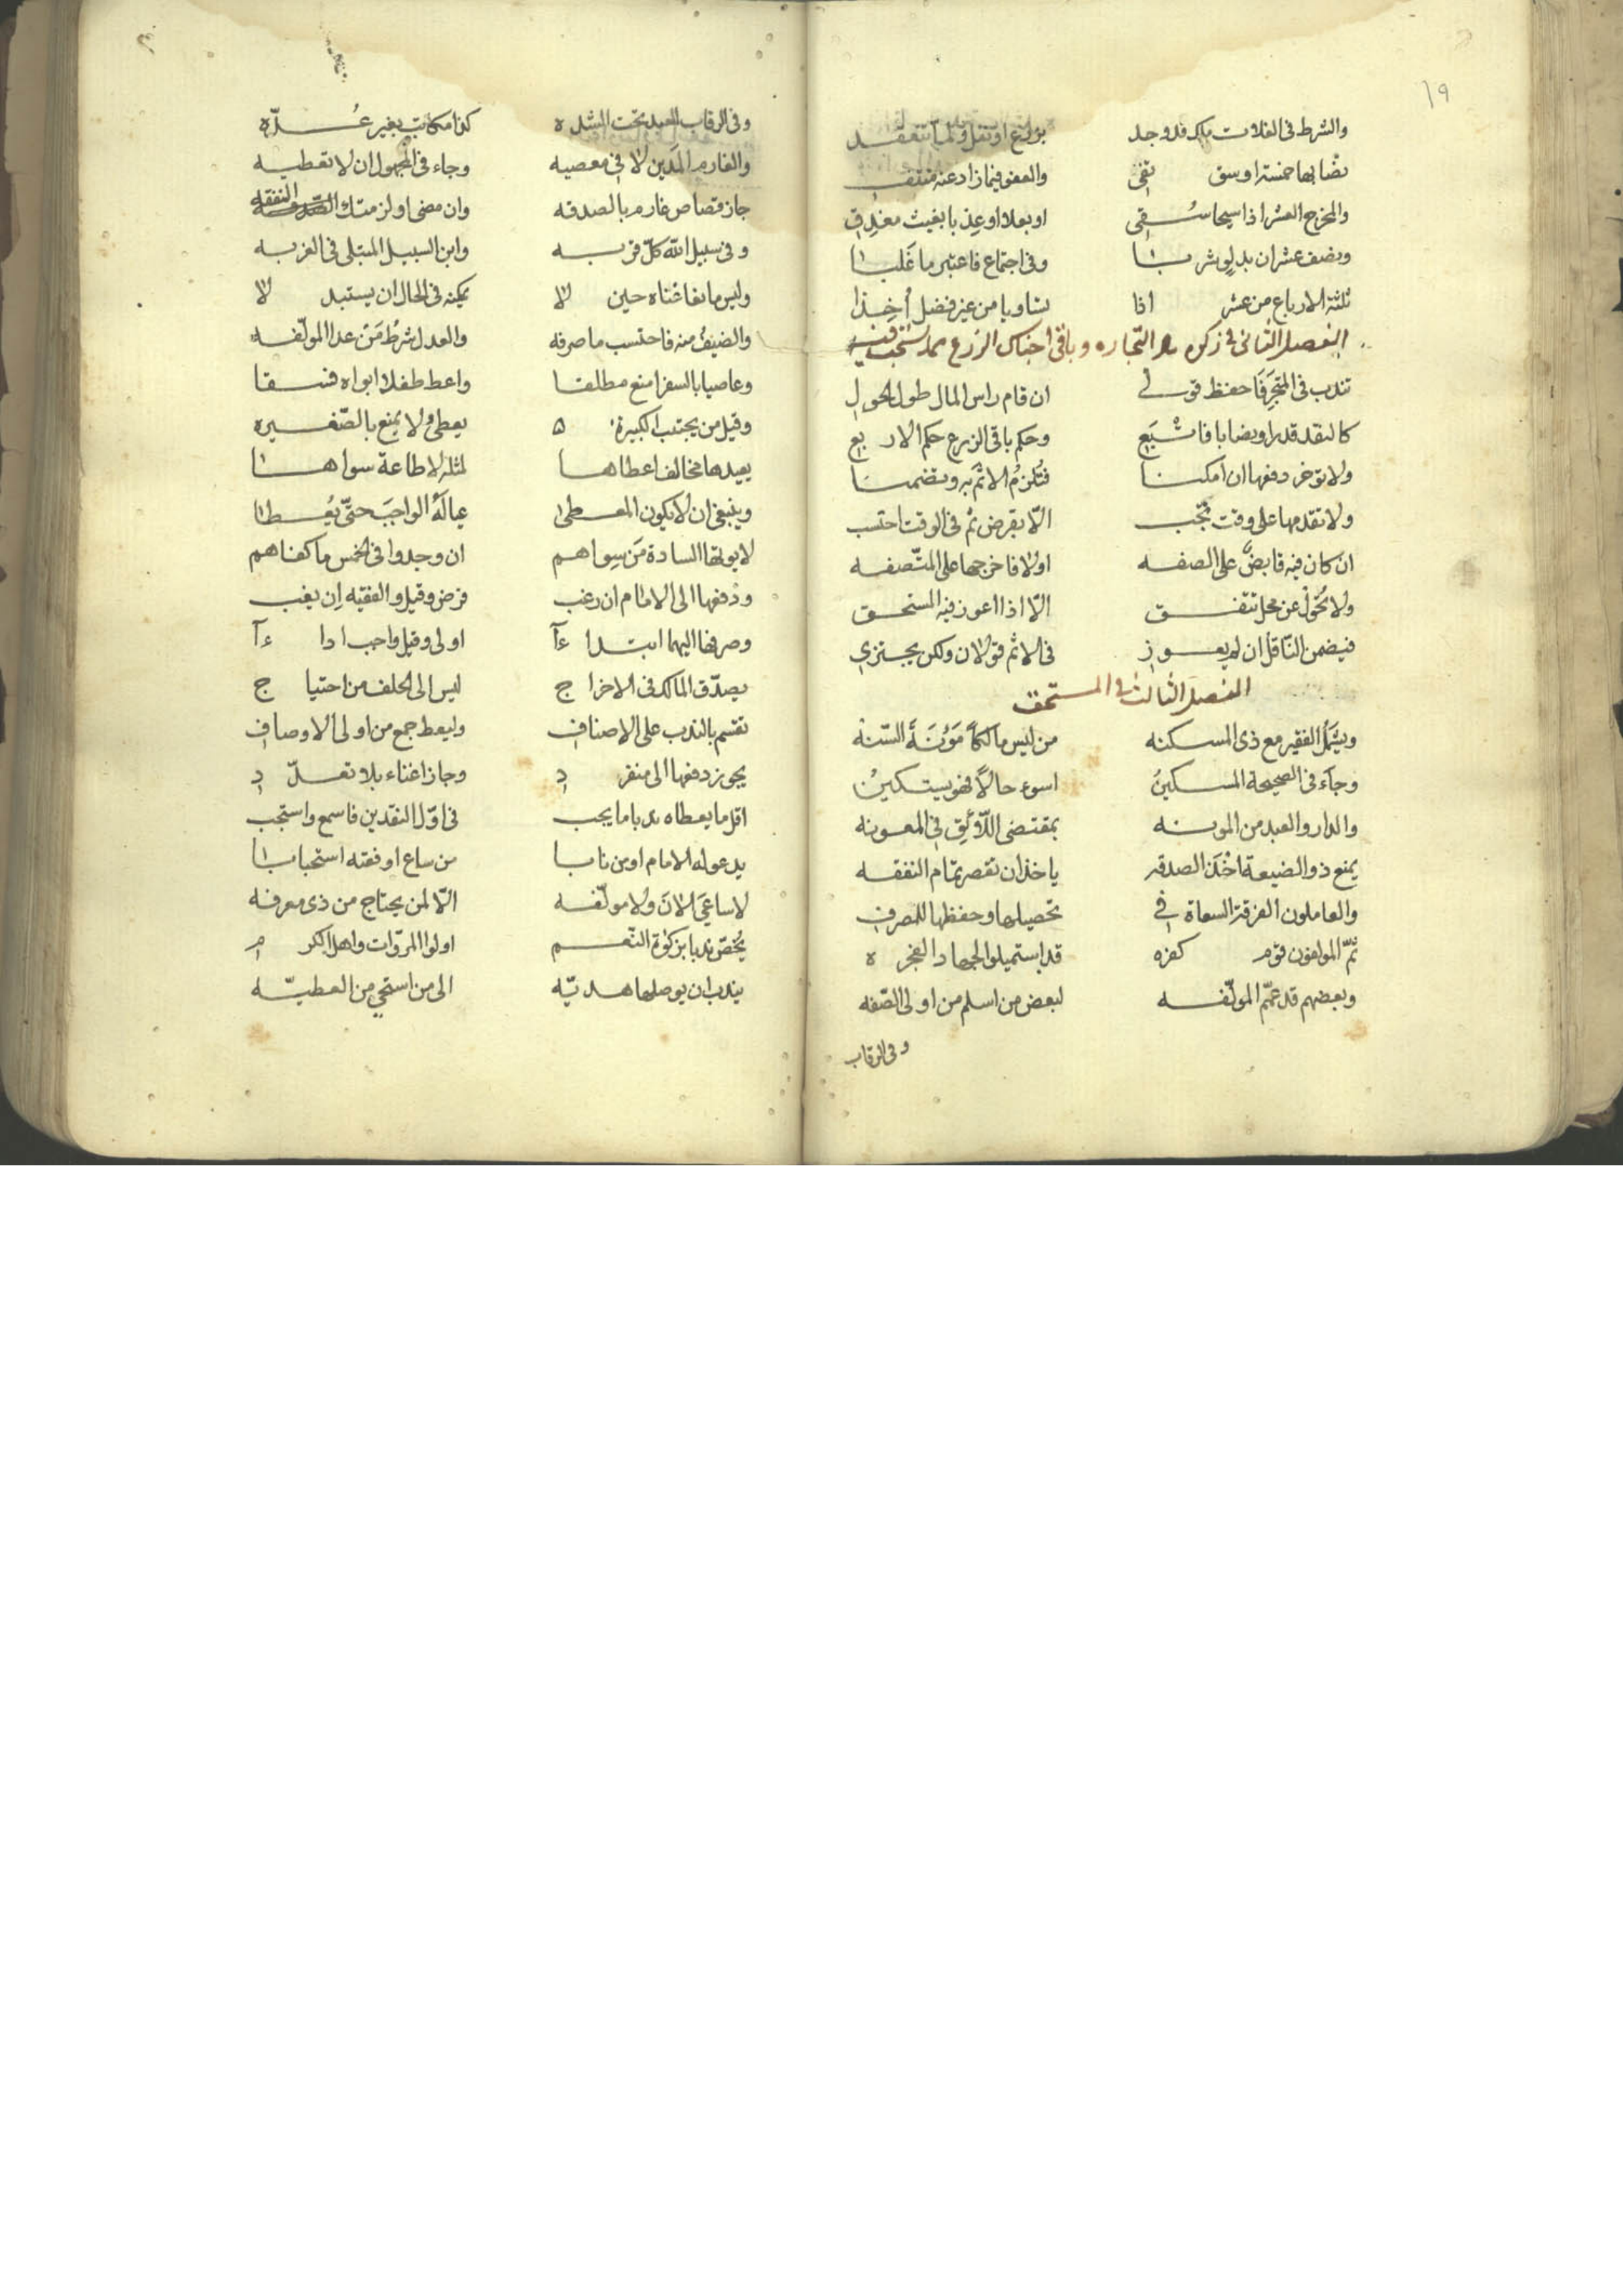 ١٩
والشرط فى الغلات ملك قد وجد بزرع او نقل ولما تنعقد
نصابها خمسة اوسق تفى والعفو فيما زاد عنه منتف
والمخرج العشر اذا سيحا سقى او بعلا او عذبا بغيث مغدق
ونصف عشر ان بدلو شربا وفى اجتماع فاعتبر ما غلبا
ثلثة الارباع من عشر اذا تساويا من غير فضل أخذا
الفصل الثانى فى زكوة التجاره وباقى اجناس الزرع مما يستحب فيه
تندب فى المتجر فاحفظ قولى ان قام راس المال طول الحول
كالنقد قدرا ونصابا فاتبع وحكم باقى الزرع حكم الاربع
ولا توخر دفعها ان امكنا فتلزم الاثم به وتضمنا
ولا تقدمها على وقت تجب الا بقرض ثم فى الوقت احتسب
ان كان فيه قابض على الصفه اولا فاخرجها على المتصفه
ولا تحول عن محل تتفق الا اذا اعوز فيه المستحق
فيضمن الناقل ان لم يعوز فى الاثم قولان ولكن يجتزى
الفصل الثالث فى المستحق
ويشمل الفقير مع ذى المسكنه من ليس مالكا مؤنة السنه
وجاء فى الصحيحة المسكين اسوء حالا فهو يستكين
والدار والعبد من المونه بمقتضى اللائق فى المعونه
يمنع ذو الضيعة اخذ الصدقه ياخذ ان تقصر تمام النفقه
والعاملون الفرقة السعاة فى تحصيلها وحفظها للمصرف
ثم المولفون قوم كفره قد استميلوا لجهاد الفجره
وبعضهم قد عمم المولفه لبعض من اسلم من اولى الصفه
وفى الرقاب
وفى الرقاب العبد تحت الشده كذا مكاتب بغير عده
والغارم المدين لا فى معصيه وجاء فى المجهول ان لا تعطيه
جاز قصاص غارم بالصدقه وان مضى او لزمتك النفقه
وفى سبيل الله كل قربه وابن السبيل المبتلى فى الغربه
وليس مانعا غناه حين لا يمكنه فى الحال ان يستبدلا
والضيف منه فاحتسب ما صرفه والعدل شرط من عدا المولفه
وعاصيا بالسفر امنع مطلقا واعط طفلا ابواه فسقا
وقيل من يجتنب الكبيره يعطى ولا يمنع بالصغيره
يعيدها مخالف اعطاها لمثله لا طاعة سواها
وينبغى ان لا يكون المعطى عياله الواجب حتى يعطا
لا يوتها السادة من سواهم ان وجدوا فى الخمس ما كفاهم
ودفعها الى الامام ان رغب فرض وقيل والفقيه ان يغب
وصرفها اليهما ابتداءآ اولى وقيل واجب اداءآ
يصدق المالك فى الاخراج ليس الى الحلف من احتياج
تقسم بالندب على الاصناف وليعط جمع من اولى الاوصاف
يجوز دفعها الى منفرد وجاز اغناء بلا تعدد
اقل ما يعطاه ندبا ما يجب فى اول النقدين فاسمع واستجب
يدعو له الامام او من نابا من ساع او فقه استحبابا
لا ساعى الان ولا مولفه الا لمن يحتاج من ذى معرفه
يخص ندبا بزكوة النعم اولوا المروات واهل الكرم
يندب ان يوصلها هديه الى من استحى من العطيه